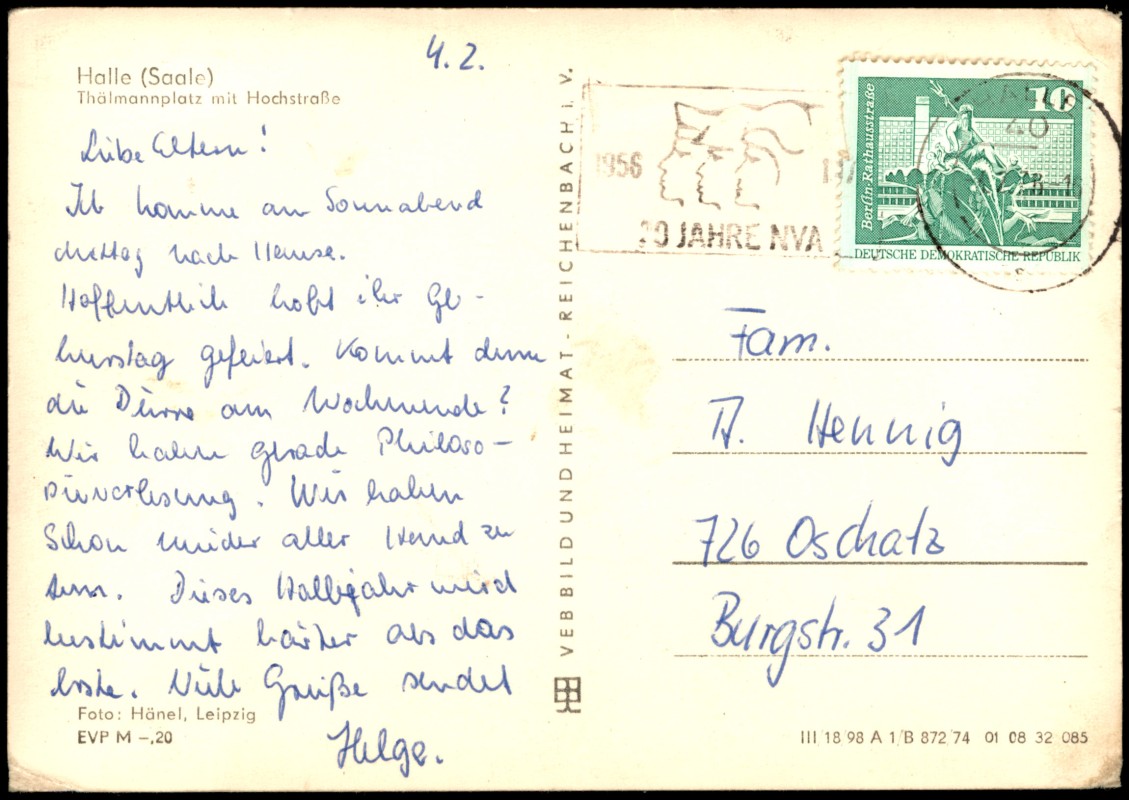 4.2.
Halle (Saale)
Thälmannplatz mit Hochstraße
Liebe Eltern!
Ich komme am Sonnabend
Mittag nach Hause.
Hoffentlich habt ihr Ge-
burstag gefeiert. Kommt denn
die am Wochenende?
Wir haben gerade Philoso-
phievorlesung. Wir haben
Schon wieder aller Hand zu
tun. Dieses Halbjahr wird
bestimmt härter als das
erste. Viele Grüße sendet
Helge.
Foto: Hänel, Leipzig
EVP M –,20
VEB BILD UND HEIMAT - REICHENBACH i. V.
1956
20 JAHRE NVA
40
10
Berlin-Rathausstraße
DEUTSCHE DEMOKRATISCHE REPUBLIK
Fam.
A. Hennig
726 Oschatz
Burgstr. 31
III 18 98 A 1/B 872/74 01 08 32 085